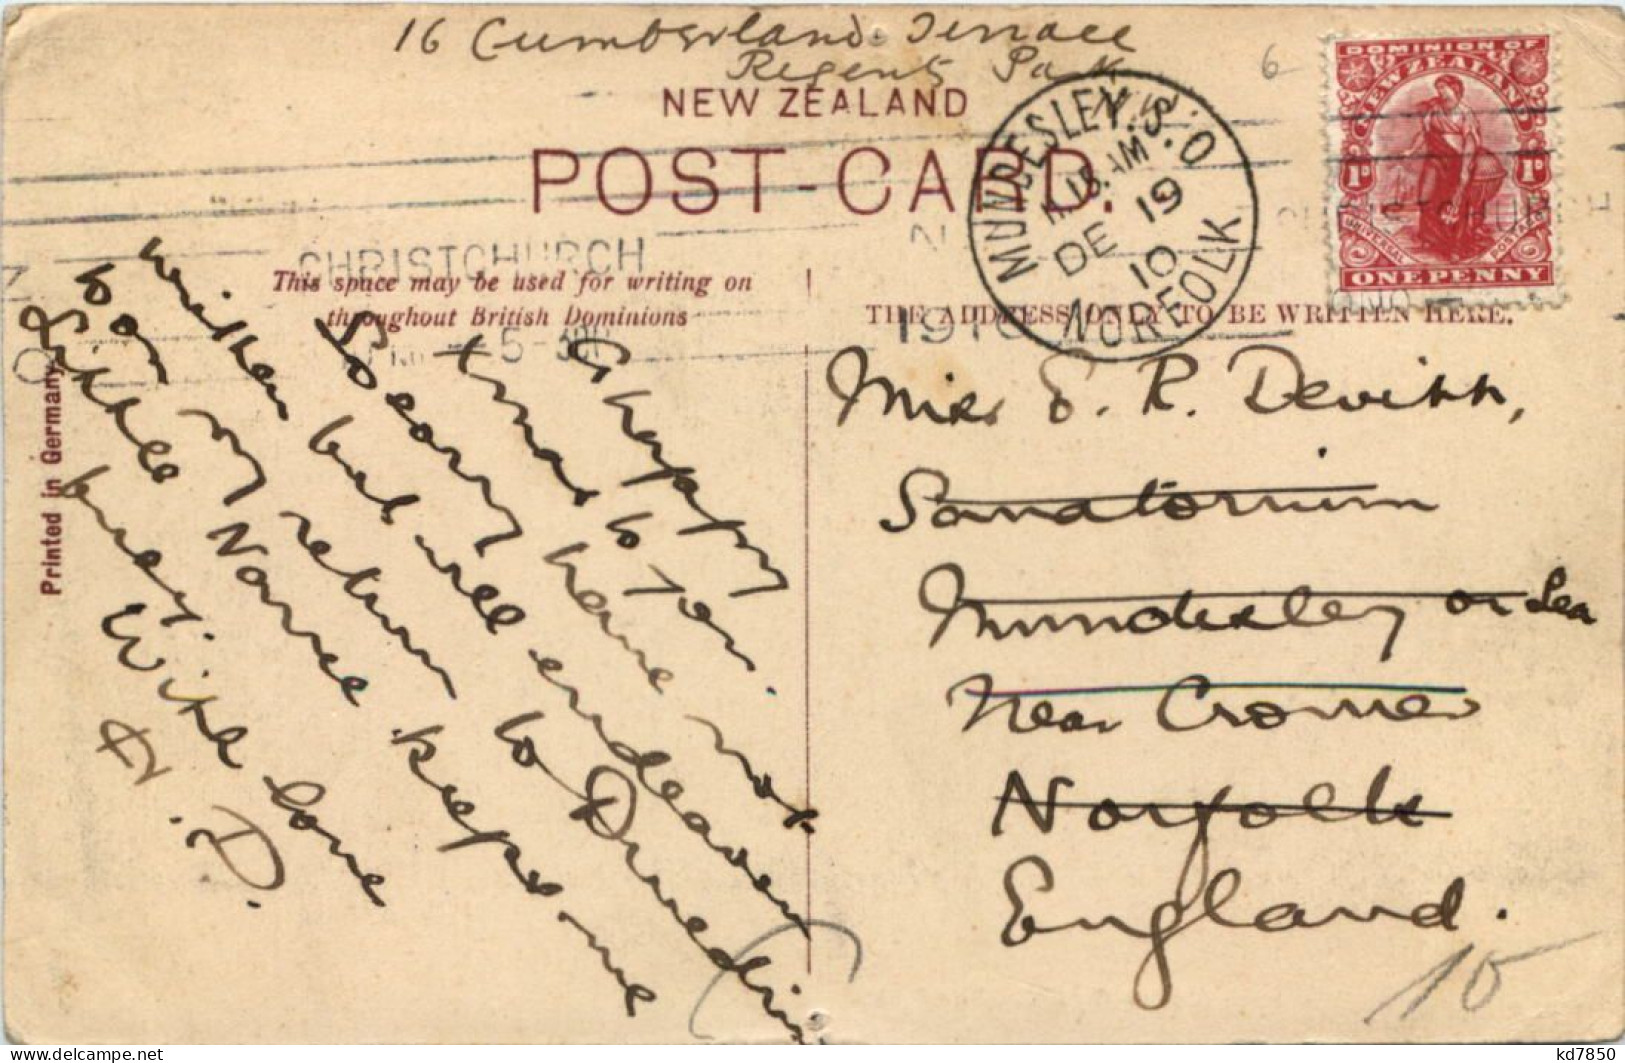 16 Cumberland Terrace
Regents Park
N.W.
6
NEW ZEALAND
POST-CARD.
DOMINION OF
NEW ZEALAND
1D 1D
UNIVERSAL POSTAGE
ONE PENNY
MUNDESLEY. S.O
11.15 AM
DE 19
10
NORFOLK
CHRISTCHURCH
1910
5-30
CHRISTCHURCH
This space may be used for writing on
throughout British Dominions
THE ADDRESS ONLY TO BE WRITTEN HERE.
Printed in Germany
A happy
Xmas to you.
So sorry have not
written but will endeavour
to on my return to Dunedin
Little Nance keeps me
busy.
With love
A.D.
Miss E. R. Devitt,
Sanatorium
Mundesley on Sea
Near Cromer
Norfolk
England.
10
kd7850